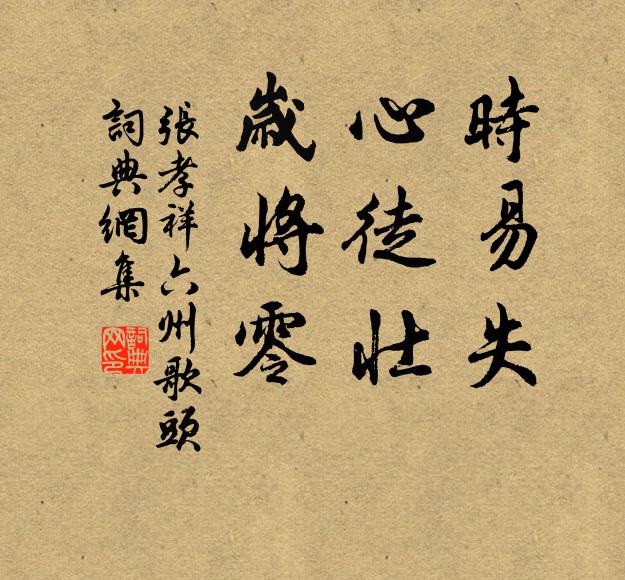 時易失
心徒壯
歲將零
張孝祥六州歌頭
詞典網集
詞典網印